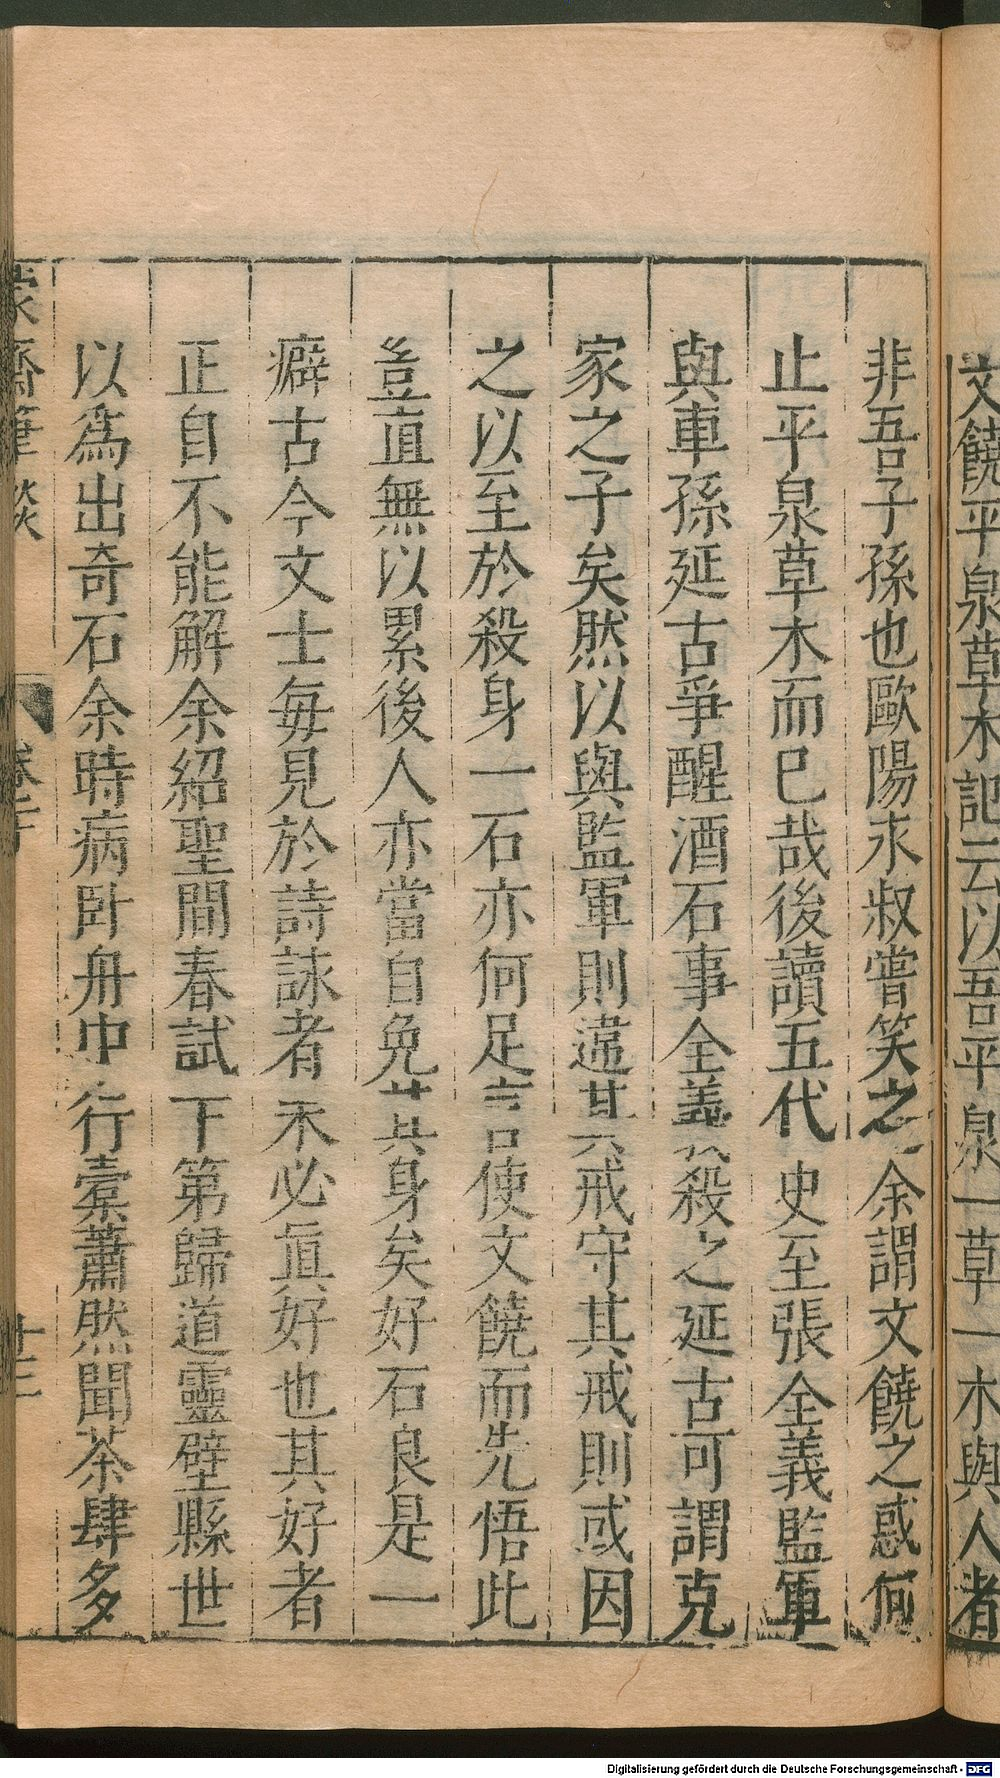 文饒平泉草木記云以吾平泉一草一木與人者
非吾子孫也歐陽永叔嘗笑之余謂文饒之惑何
止平泉草木而已哉後讀五代史至張全義監軍
與車孫延古爭醒酒石事全義殺之延古可謂克
家之子矣然以與監軍則違其戒守其戒則或因
之以至於殺身一石亦何足言使文饒而先悟此
豈直無以累後人亦當自免其身矣好石良是一
癖古今文士每見於詩詠者未必眞好也其好者
正自不能解余紹聖間春試下第歸道靈壁縣世
以爲出奇石余時病臥舟中行橐蕭然聞茶肆多
蒙齋筆談
卷下
十三
Digitalisierung gefördert durch die Deutsche Forschungsgemeinschaft - DFG